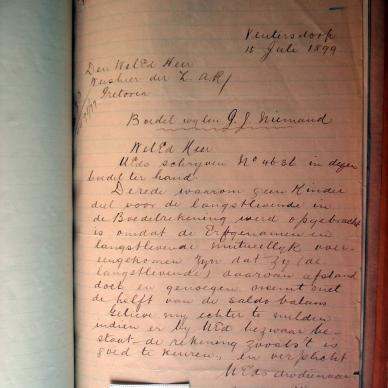 Ventersdorp
15 Julie 1899
Den WelEd Heer
Weesheer der Z. A. R.
Pretoria
Boedel wylen G. J. Niemand
WelEd Heer
UEds schryven No 4636 in dezen
boedel ter hand
De rede waarom geen Kinder
deel voor de langstlevende in
de Boedelrekening werd opgebracht
is omdat de Erfgenamen en
langstlevende mutueelyk over-
eengekomen zyn dat zy (de
langstlevende) daarvan afstand
doet en genoegen neemt met
de helft van de saldo balans
Gelieve my echter te melden
indien er by UEd bezwaar be-
staat de rekening zooals 't is
goed te keuren, en verplicht
UEds dw dienaar